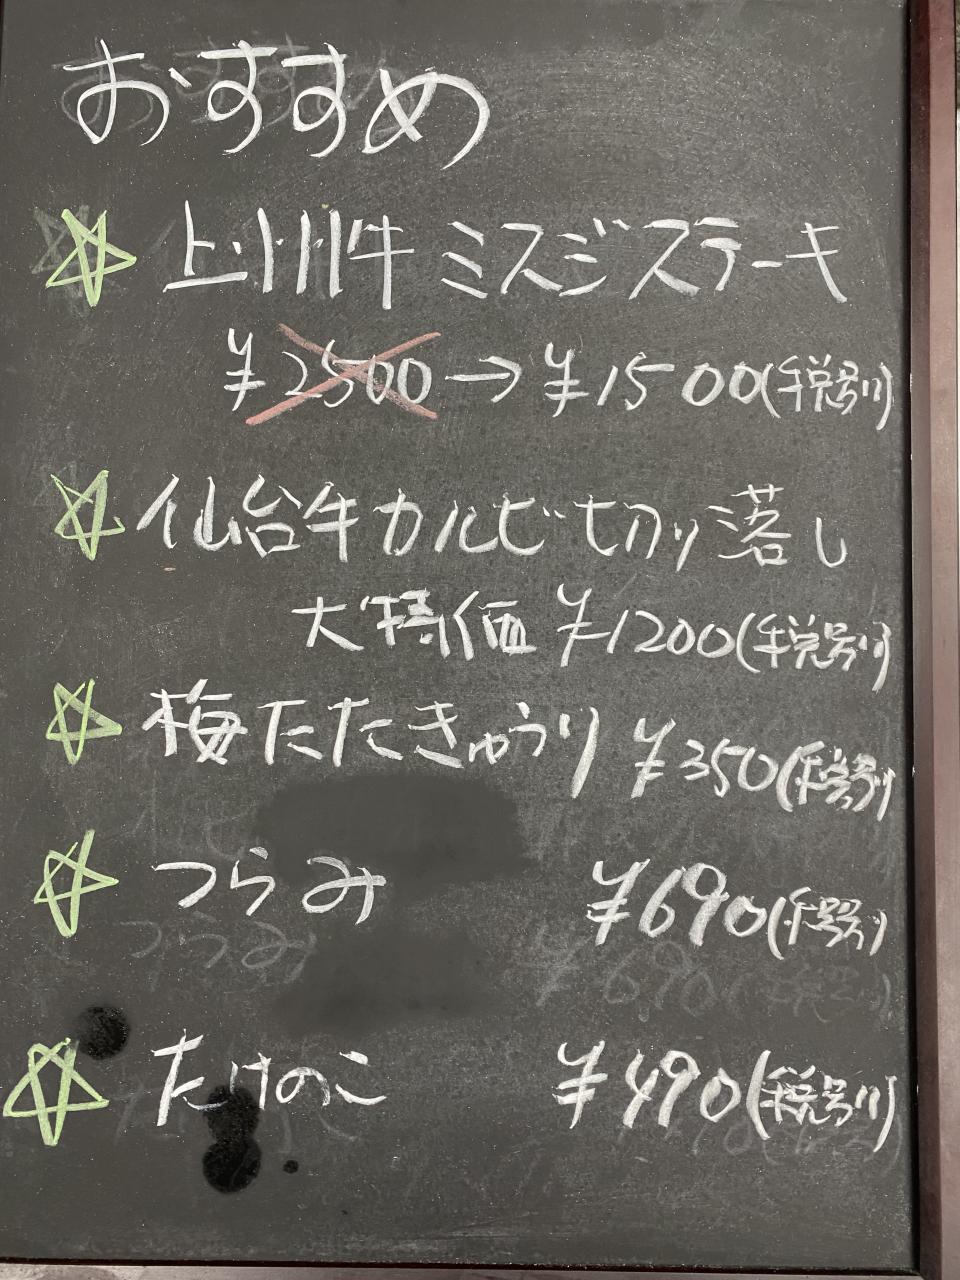 おすすめ
☆ 上州牛 ミスジステーキ
¥2500→¥1500(税別)
☆ 仙台牛カルビ切り落し
大特価 ¥1200(税別)
☆ 梅たたきゅうり ¥350(税別)
☆ つらみ ¥690(税別)
☆ たけのこ ¥490(税別)